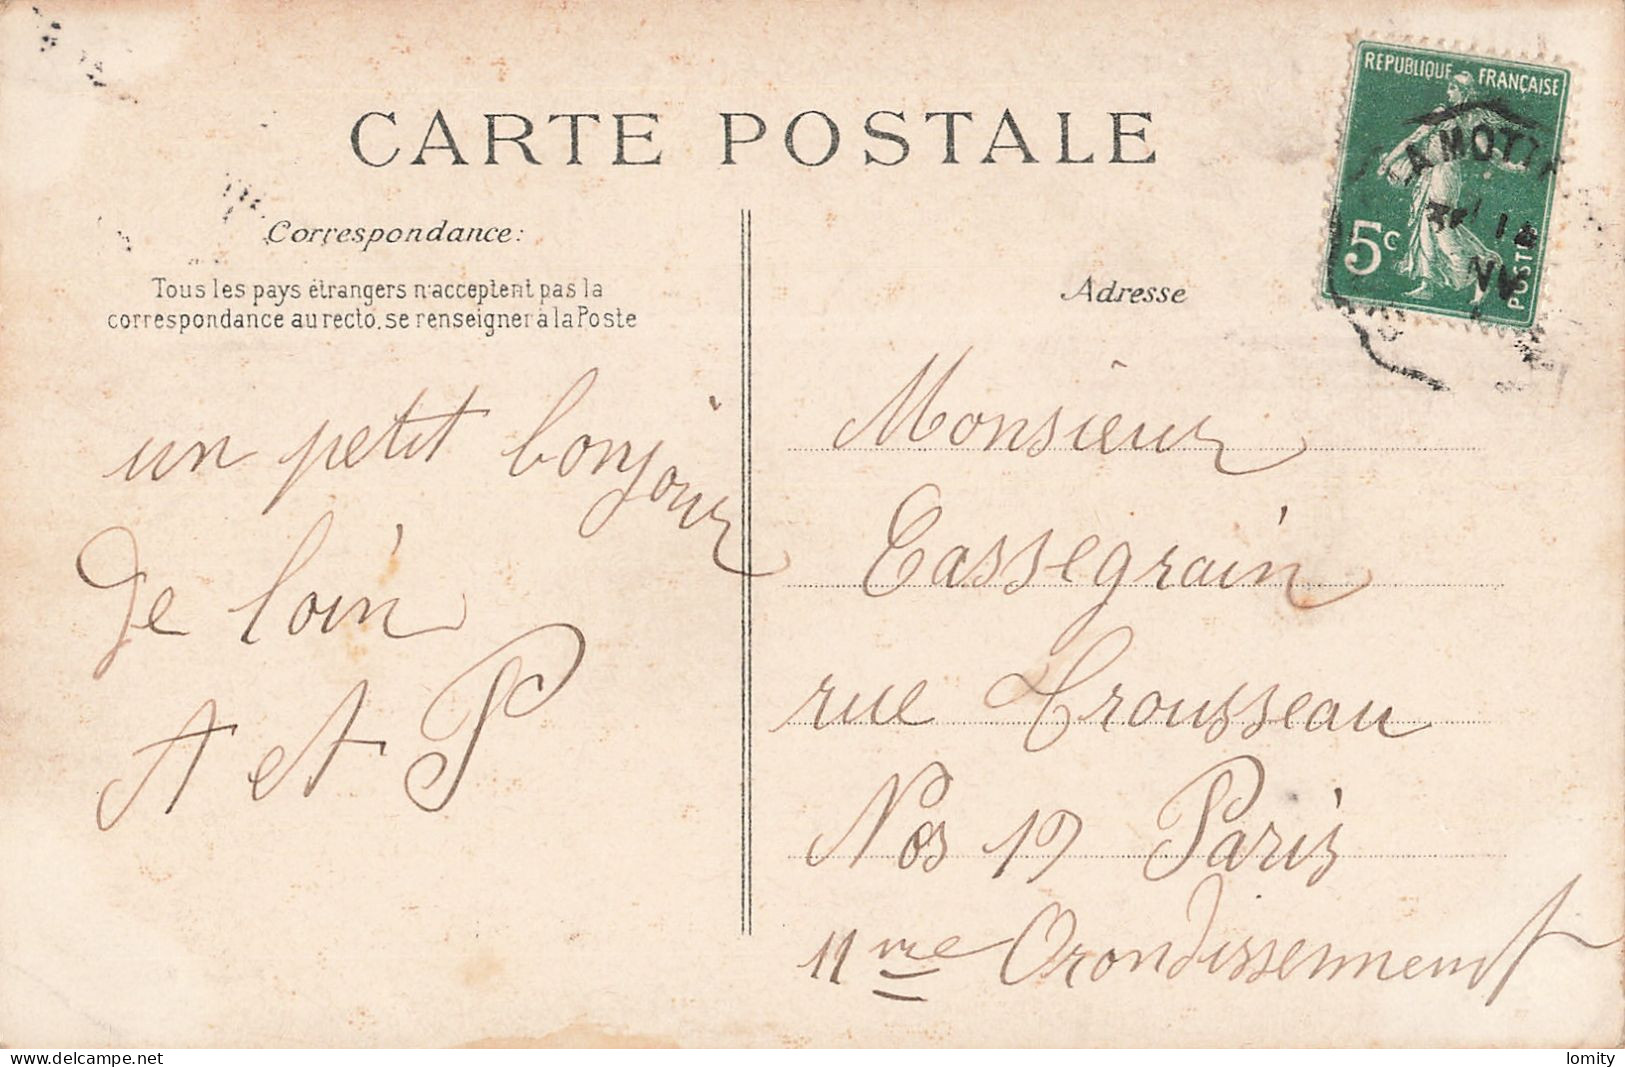 CARTE POSTALE
Correspondance:
Tous les pays étrangers n'acceptent pas la
correspondance au recto, se renseigner à la Poste
un petit bonjour
De loin
A et P
Adresse
Monsieur
Cassegrain
rue Trousseau
Nos 19 Paris
11 me Orondissemment
REPUBLIQUE FRANÇAISE
5c
POSTE
LA MOTTE
delcampe.net
lomity